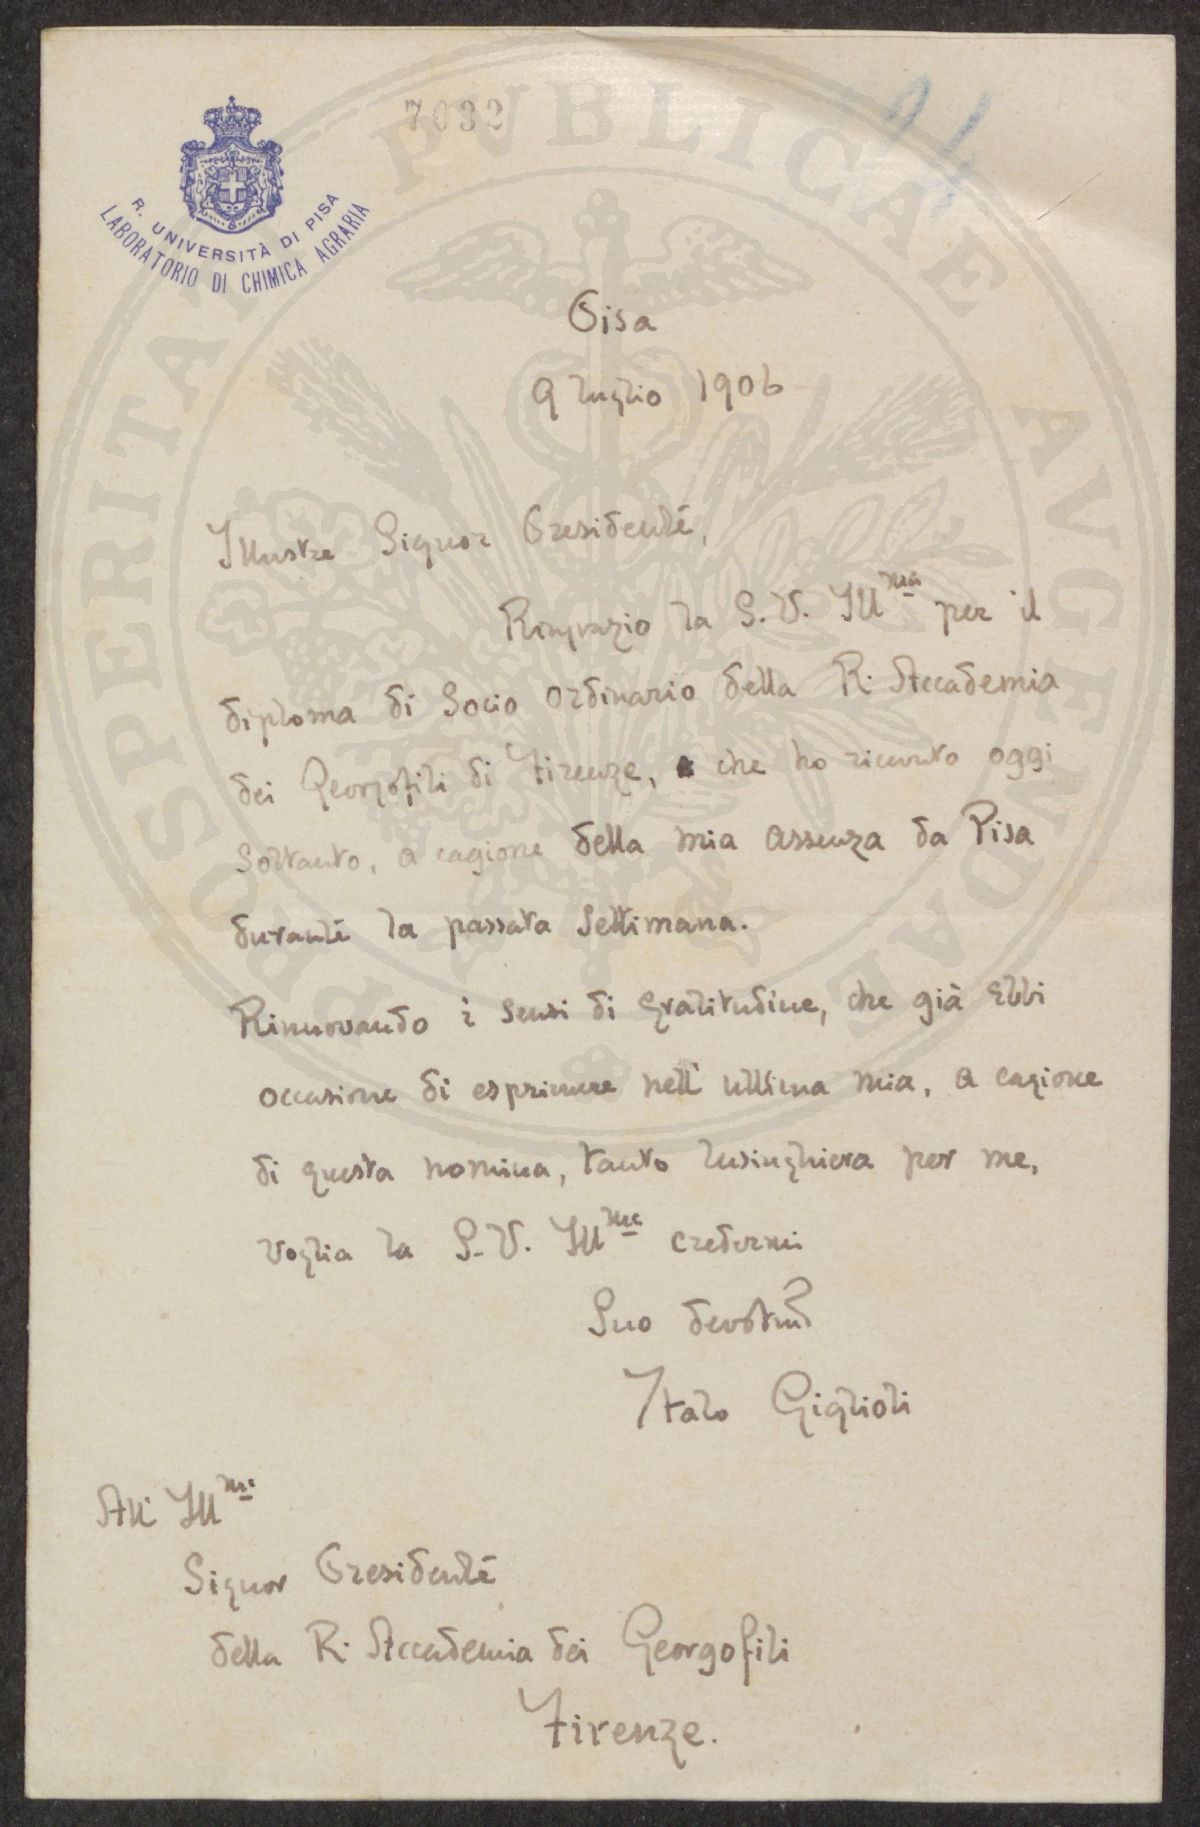 7032
R. UNIVERSITÀ DI PISA
LABORATORIO DI CHIMICA AGRARIA
PROSPERITATI PVBLICAE AVGENDAE
Pisa
9 luglio 1906
Illustre Signor Presidente,
Ringrazio la S. V. Ill.ma per il
diploma di Socio Ordinario della R. Accademia
dei Georgofili di Firenze, che ho ricevuto oggi
soltanto, a cagione della mia assenza da Pisa
durante la passata Settimana.
Rinnovando i sensi di gratitudine, che già ebbi
occasione di esprimere nell' ultima mia, a cagione
di questa nomina, tanto lusinghiera per me,
voglia la S. V. Ill.ma credermi
Suo devotmo
Italo Giglioli
All' Ill.mo
Signor Presidente
della R. Accademia dei Georgofili
Firenze.